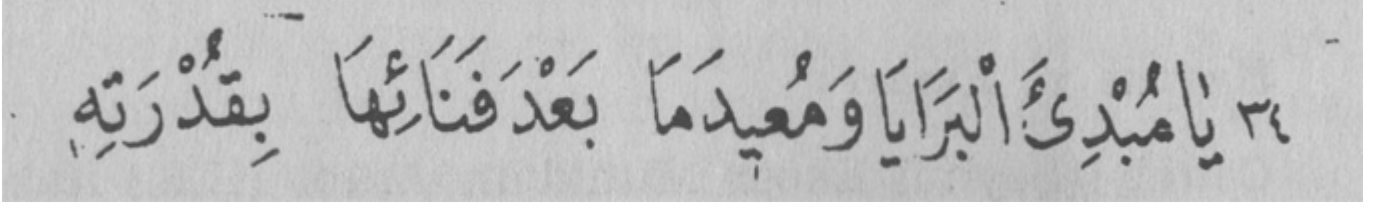 ٣٤ يَا مُبْدِئَ الْبَرَايَا وَمُعِيدَمَا بَعْدَ فَنَائِهَا بِقُدْرَتِهِ